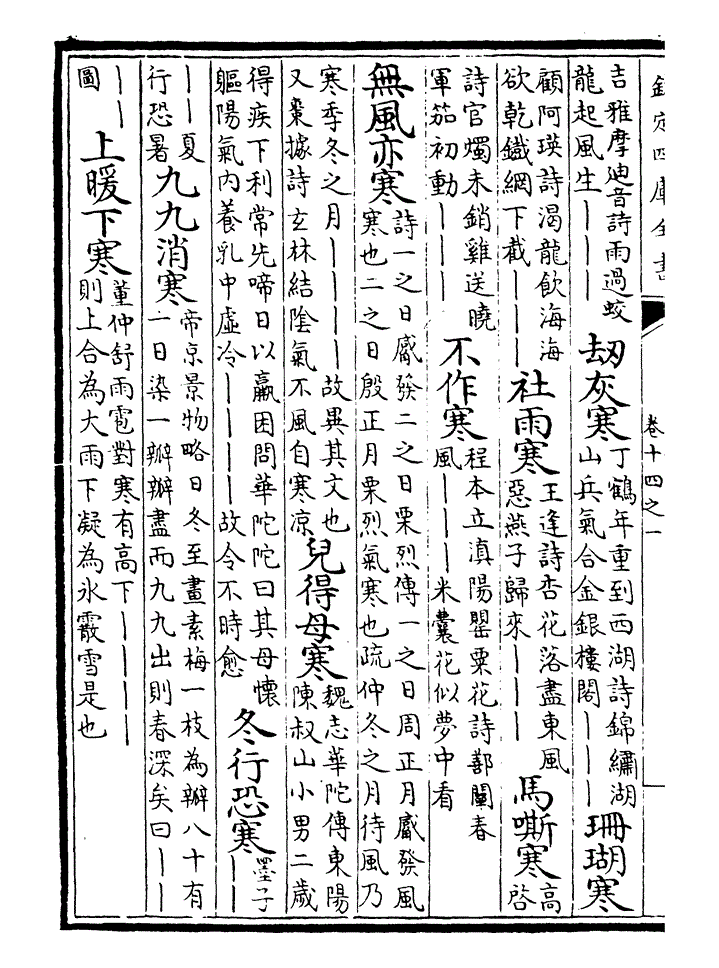 欽定四庫全書
卷十四之一
吉雅摩迪音詩雨過蛟
龍起風生｜｜｜
劫灰寒
丁鶴年重到西湖詩錦繡湖
山兵氣合金銀樓閣｜｜｜
珊瑚寒
顧阿瑛詩渴龍飲海海
欲乾鐵網下截｜｜｜
社雨寒
王逢詩杏花落盡東風
惡燕子歸來｜｜｜
馬嘶寒
高
啓
詩官燭未銷雞送曉
軍笳初動｜｜｜
不作寒
程本立滇陽罌粟花詩鄯闡春
風｜｜｜米囊花似夢中看
無風亦寒
詩一之日觱發二之日栗烈傳一之日周正月觱發風
寒也二之日殷正月栗烈氣寒也疏仲冬之月待風乃
寒季冬之月｜｜｜｜故異其文也
又棗據詩玄林結陰氣不風自寒凉
兒得母寒
魏志華陀傳東陽
陳叔山小男二歲
得疾下利常先啼日以羸困問華陀陀曰其母懷
軀陽氣內養乳中虛冷｜｜｜｜故令不時愈
冬行恐寒
墨子
｜｜
｜｜夏
行恐暑
九九消寒
帝京景物略日冬至畫素梅一枝為瓣八十有
一日染一瓣瓣盡而九九出則春深矣曰｜｜
｜｜
圖
上暖下寒
董仲舒雨雹對寒有高下｜｜｜｜
則上合為大雨下凝為氷霰雪是也